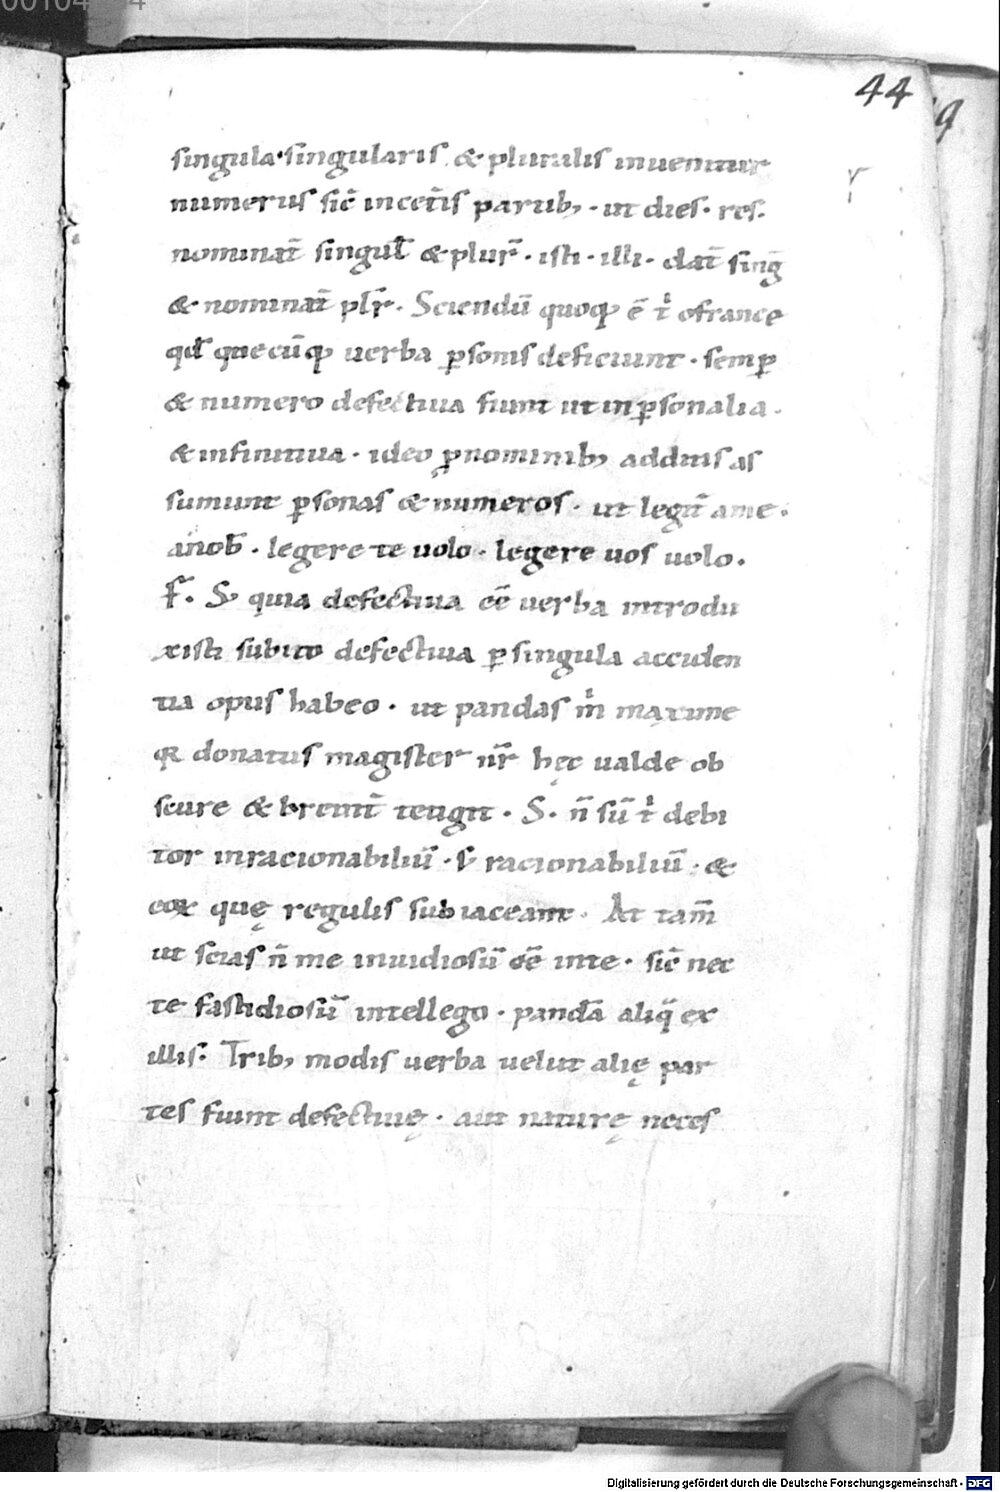 44
singula·singularis & pluralis inuenitur
numerus sic̄ in cet̄is partib; · ut dies · res.
nominat̄ singul̄ & plur̄ · isti · illi · dat̄ sing̅
& nominat̄ pl̅r · Sciendū quoq; ē t' o france
qđ quecūq; uerba ꝑsonis deficiunt · semꝑ
& numero defectiua fiunt ut inꝑsonalia ·
& infinitiua · ideo ꝓnominib; additis as
sumunt ꝑsonas & numeros · ut legit̄ a me ·
a nob̄ · legere te uolo · legere uos uolo ·
F̄ · S; quia defectiua eē uerba introdu
xisti subito defectiua ꝑ singula acciden
tia opus habeo · ut pandas m' maxime
qꝛ donatus magister nr̄ hęc ualde ob
scure & breuit̄ tetigit · S · n̄ sū t' debi
tor inracionabiliū · s; racionabiliū · &
eoꝝ quę regulis subiaceant · At tam̄
ut scias n̄ me inuidiosū eē in te · sic̄ nec
te fastidiosū intellego · pandā aliq̄ ex
illis · Trib; modis uerba uelut alię par
tes fiunt defectiuę · aut naturę neces
Digitalisierung gefördert durch die Deutsche Forschungsgemeinschaft - DFG